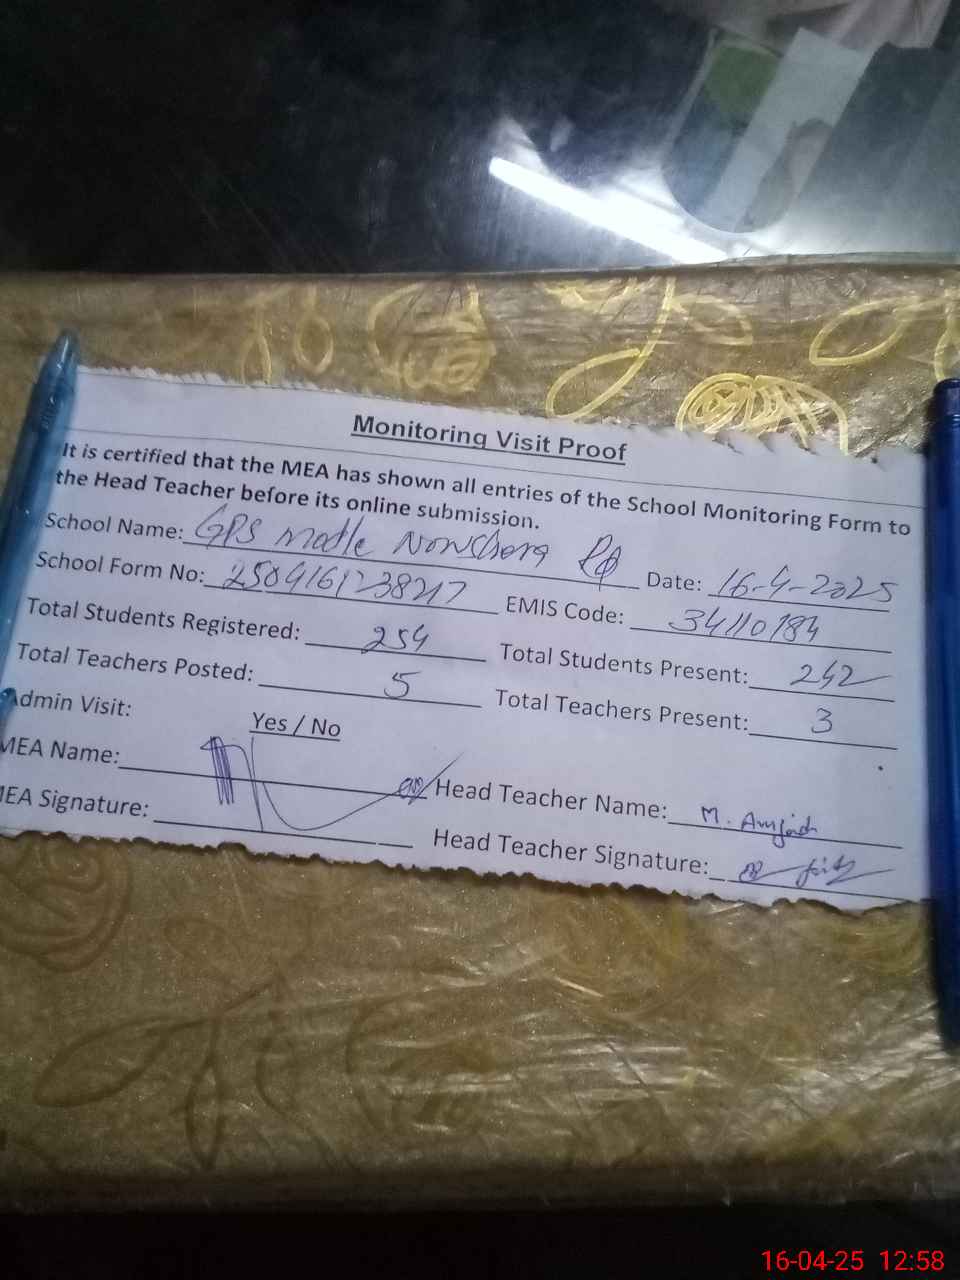 Monitoring Visit Proof
It is certified that the MEA has shown all entries of the School Monitoring Form to
the Head Teacher before its online submission.
School Name: GPS Date: 16-4-2025
School Form No: EMIS Code: 34110184
Total Students Registered: 254 Total Students Present: 242
Total Teachers Posted: 5 Total Teachers Present: 3
Admin Visit: Yes / No
MEA Name: Head Teacher Name: M. Amjad
MEA Signature: Head Teacher Signature:
16-04-25 12:58